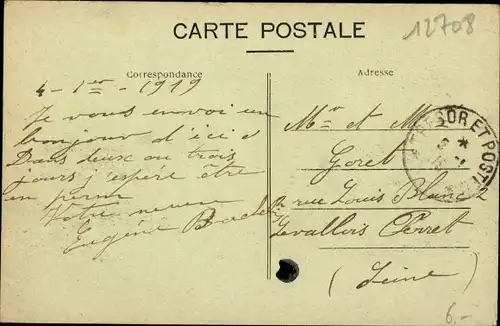 CARTE POSTALE
12708
Correspondance
Adresse
4 - 1er - 1919
Je vous envoi un
bonjour d'ici
Dans deux ou trois
jours j'espère être
en perm
Votre neveu
Eugène
TRESOR ET POSTES
Mr et Mme
Goret
rue Louis Blanc
Levallois Perret
(Seine)
6.-